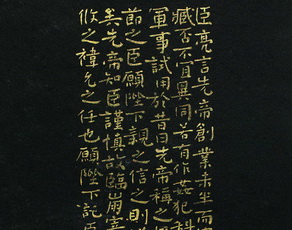 臣亮言先帝創業未半而
臧否不宜異同若有作姦犯科
軍事試用於昔日先帝稱之
節之臣願陛下親之信之則
矣先帝知臣謹慎故臨崩寄
攸之禕允之任也願陛下託臣